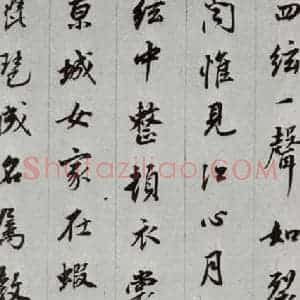 四絃一聲如裂
惟見江心月
絃中整頓衣裳
京城女家在蝦
琵琶成名屬教
Shufaziliao.COM